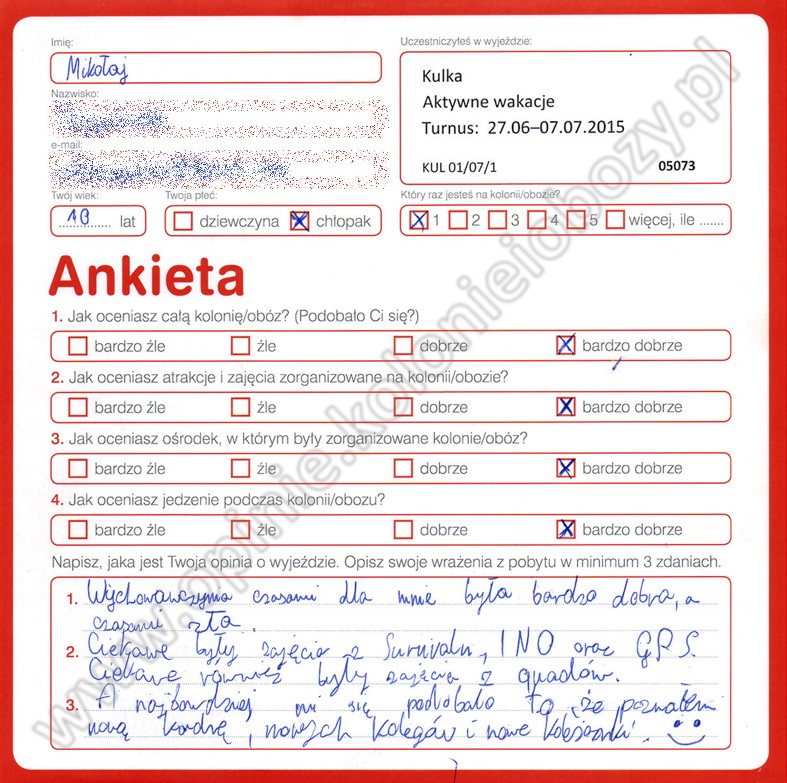 Imię:
Mikołaj
Nazwisko:
e-mail:
Twój wiek:
10 lat
Twoja płeć:
dziewczyna chłopak
Uczestniczyłeś w wyjeździe:
Kulka
Aktywne wakacje
Turnus: 27.06–07.07.2015
KUL 01/07/1 05073
Który raz jesteś na kolonii/obozie?
1 2 3 4 5 więcej, ile .......
Ankieta
1. Jak oceniasz całą kolonię/obóz? (Podobało Ci się?)
bardzo źle źle dobrze bardzo dobrze
2. Jak oceniasz atrakcje i zajęcia zorganizowane na kolonii/obozie?
bardzo źle źle dobrze bardzo dobrze
3. Jak oceniasz ośrodek, w którym były zorganizowane kolonie/obóz?
bardzo źle źle dobrze bardzo dobrze
4. Jak oceniasz jedzenie podczas kolonii/obozu?
bardzo źle źle dobrze bardzo dobrze
Napisz, jaka jest Twoja opinia o wyjeździe. Opisz swoje wrażenia z pobytu w minimum 3 zdaniach.
1. Wychowawczynia czasami dla mnie była bardzo dobra, a
czasami zła.
2. Ciekawe były zajęcia z Survivalu, INO oraz GPS.
Ciekawe również były zajęcia z quadów.
3. A najbardziej mi się podobało to, że poznałem
nową kadrę, nowych kolegów i nowe koleżanki.
www.opinie.kolonieiobozy.pl